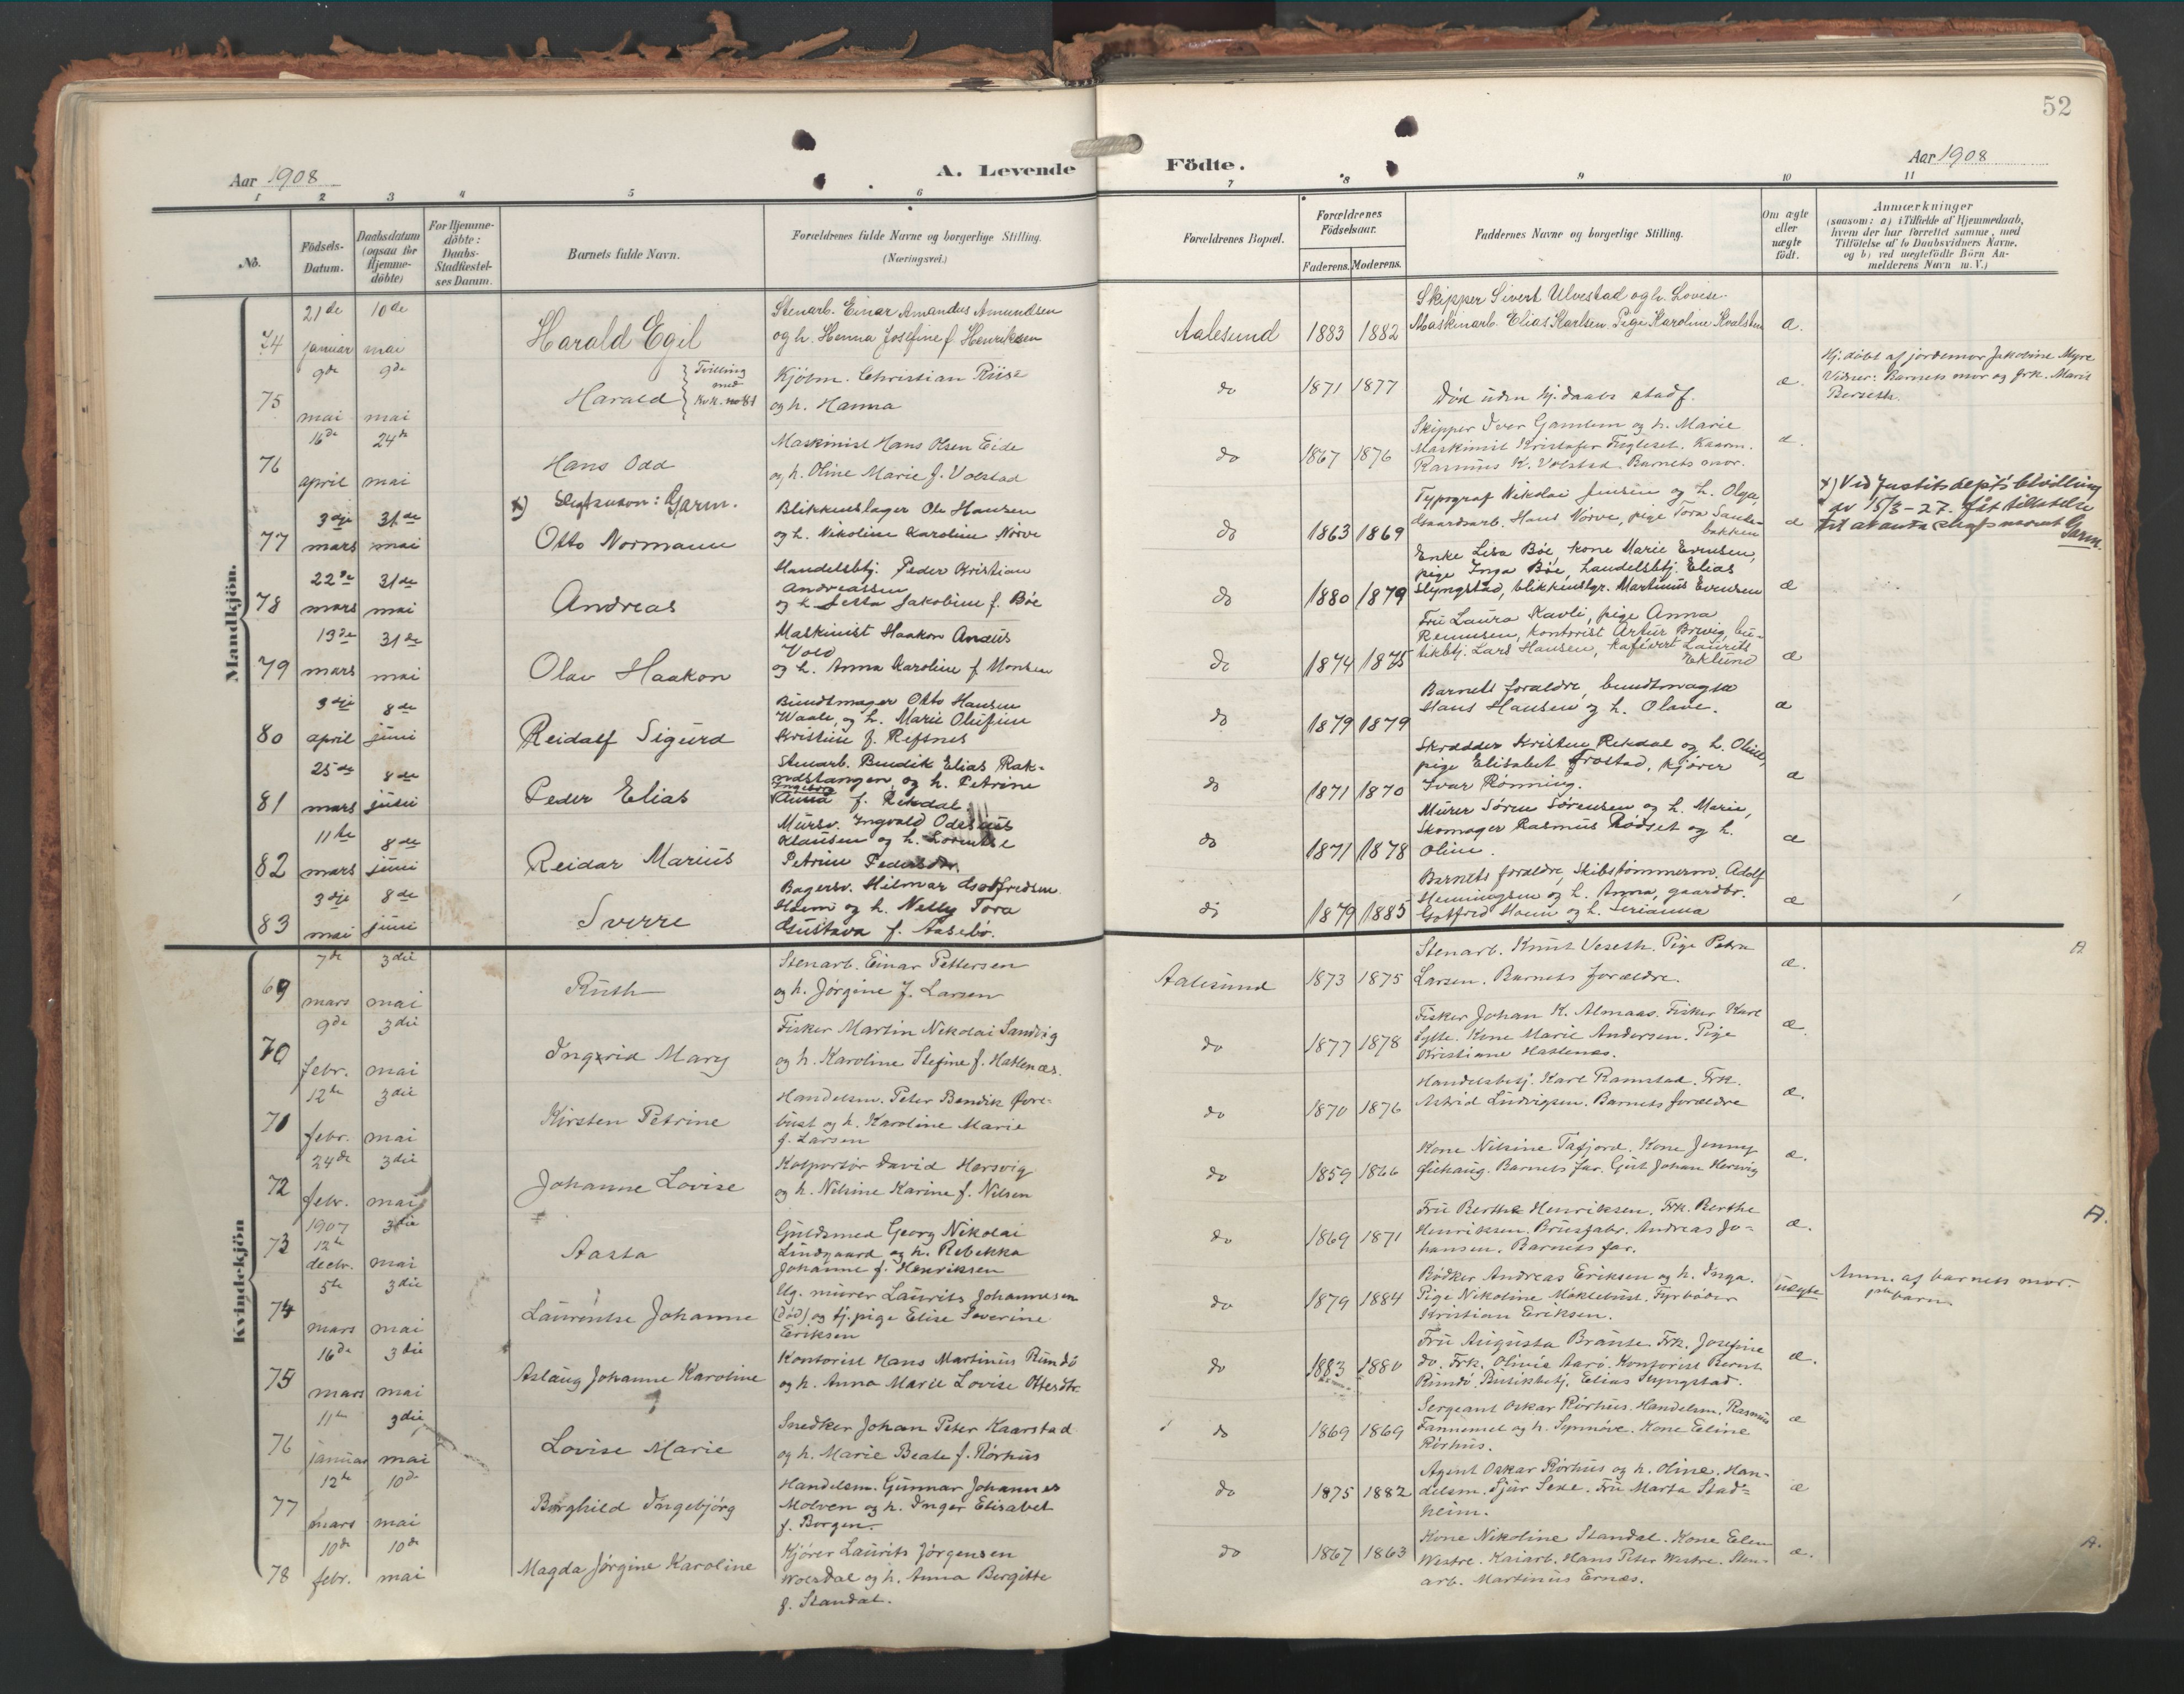 52
Aar 1908
A. Levende
Födte.
Aar 1908
1 2 3 4 5 6 7 8 9 10 11
No.
Födsels-Datum.
Daabsdatum (ogsaa for Hjemme-döbte)
For Hjemme-döbte: Daabs-Stadfæstel-ses Datum.
Barnets fulde Navn.
Forældrenes fulde Navne og borgerlige Stilling.
(Næringsvei.)
Forældrenes Bopæl.
Forældrenes Födselsaar.
Faderens. Moderens.
Faddernes Navne og borgerlige Stilling.
Om ægte eller uægte födt.
Anmærkninger
(saasom: a) i Tilfælde af Hjemmedaab,
hvem der har forrettet samme, med
Tilföielse af to Daabsvidners Navne,
og b) ved uægtefödte Börn An-
melderens Navn m. V.)
Mandkjön.
74 21de januar 10de mai
Harald Egil
Stenarb. Einar Amandus Amundsen
og h. Hanna Josefine f. Henriksen
Aalesund 1883 1882
Skipper Sivert Ulvestad og h. Lovise.
Maskinarb. Elias Karlsen. Pige Karoline Kvalsten
æ.
75 9de mai 9de mai
Harald
Tvilling med Kvk. no 81
Kjøbm. Christian Riise
og h. Hanna
do 1871 1877
Død uden hj.daabs stadf.
æ.
Hj.døbt af jordemor Jakobine Myre
Vidner: Barnets mor og frk. Marit
Berseth.
76 16de april 24de mai
Hans Odd
Maskinist Hans Olsen Eide
og h. Oline Marie f. Volstad
do 1867 1876
Skipper Iver Gamlem og h. Marie
Maskinist Kristofer Fugleset. Kaarm.
Rasmus K. Volstad. Barnets mor.
æ.
77 3dje mars 31de mai
x) Slegtsnavn: Garm.
Otto Normann
Blikkenslager Ole Hansen
og h. Nikoline Karoline Nörve
do 1863 1869
Typograf Nikolai Jensen og h. Olga,
Gaardsarb. Hans Nörve, pige Tora Sande-
bakken
æ
x) Ved Justitsdept's bevilling
av 15/3-27. fåt tillatelse
til at anta slegtsnavnet Garm.
78 22de mars 31de mai
Andreas
Handelsbtj. Peder Kristian
Andreassen
og h. Jetta Jakobine f. Böe
do 1880 1879
Enke Lisa Böe, kone Marie Evensen,
pige Inga Böe, handelsbtj. Elias
Slyngstad, blikkenslgr. Martinus Evensen
æ
79 13de mars 31de mai
Olav Haakon
Maskinist Haakon Anæus
Vold
og h. Anna Karoline f. Monsen
do 1874 1875
Fru Laura Kavli, pige Anna
Remmen, kontorist Artur Brevig, bu-
tikbtj. Lars Hansen, kafévert Laurits
Eklund
æ
80 3dje april 8de juni
Reidalf Sigurd
Bundtmager Otto Hansen
Waale, og h. Marie Olufine
Kristine f. Refsnes
do 1879 1879
Barnets forældre, bundtmager
Hans Hansen og h. Olave.
æ
81 25de mars 8de juni
Peder Elias
Stenarb. Bendik Elias Rak-
nedstangen, og h. Petrine
Ingeborg
Anna f. Rekdal.
do 1871 1870
Skrædder Kristen Rekdal og h. Oline,
pige Elisabet Frostad, kjörer
Ivar Rønning.
æ
82 11te mars 8de juni
Reidar Marius
Mursv. Ingvald Odenius
Klausen og h. Lorentse
Petrine Pedersdtr.
do 1871 1878
Murer Sören Sörensen og h. Marie,
Skomager Rasmus Rödset og h.
Oline.
æ
83 3dje mai 8de juni
Sverre
Bagersv. Hilmar Gotfredsen
Hoem og h. Nelly Tora
Gustava f. Aasebö.
do 1879 1885
Barnets forældre, Skibstömmerm. Adolf
Henningsen og h. Anna, gaardbr.
Gotfred Hoem og h. Serianna
æ
Kvindekjön
69 7de mars 3die mai
Ruth
Stenarb. Einar Pettersen
og h. Jørgine f. Larsen
Aalesund 1873 1875
Stenarb. Knut Veseth. Pige Petra
Larsen. Barnets forældre.
æ.
A
70 9de febr. 3die mai
Ingrid Mary
Fisker Martin Nikolai Sandvig
og h. Karoline Stefine f. Hatlenæs.
do 1877 1878
Fisker Johan K. Almaas. Fisker Karl
Sylte. Kone Marie Andersen. Pige
Kristiane Hatlenæs.
æ.
71 12te febr. 3die mai
Kirsten Petrine
Handelsm. Peter Bendik Øvre-
bust og h. Karoline Marie
f. Larsen
do 1870 1876
Handelsbetj. Karl Ramstad. Frk.
Astrid Ludvigsen. Barnets forældre
æ.
72 24de febr. 3die mai
Johanne Lovise
Kolportör David Hersvig
og h. Nilsine Karine f. Nilsen
do 1859 1866
Kone Nilsine Tafjord. Kone Jenny
Giehaug. Barnets far. Gut Johan Hersvig
æ.
73 1907 12te decbr. 3die mai
Aasta
Guldsmed Georg Nikolai
Lindgaard og h. Rebekka
Johanne f. Henriksen
do 1869 1871
Fru Berthe Henriksen. Frk. Berthe
Henriksen. Brusfabr. Andreas Jo-
hansen. Barnets far.
æ.
A.
74 5te mars 3die mai
Laurentse Johanne
Ug. murer Laurits Johannesen
(död) og tj.pige Elise Severine
Eriksen
do 1879 1884
Bødker Andreas Eriksen og h. Inga.
Pige Nikoline Møklebust. Fyrbøder
Kristian Eriksen.
uægte
Anm. af barnets mor.
barn
75 16de mars 3die mai
Aslaug Johanne Karoline
Kontorist Hans Martinus Rundö
og h. Anna Marie Lovise Ottesdtr.
do 1883 1880
Fru Augusta Brante. Frk. Josefine
do. Frk. Olivie Aarö. Kontorist Bernt
Rundö. Butikbetj. Elias Slyngstad.
æ.
76 11te januar 3die mai
Lovise Marie
Snedker Johan Peter Kaarstad
og h. Marie Beate f. Rörhus
do 1869 1869
Sergeant Oskar Rörhus. Handelsm. Rasmus
Fannemel og h. Synnöve. Kone Eline
Rörhus.
æ
77 12te mars 10de mai
Borghild Ingebjörg
Handelsm. Gunnar Johannes
Molven og h. Inger Elisabet
f. Borgen.
do 1875 1882
Agent Oskar Rörhus og h. Oline. Han-
delsm. Sjur Sexe. Fru Marta Stad-
heim.
æ
78 10de febr. 10de mai
Magda Jørgine Karoline
Kjörer Laurits Jörgensen
Wolsdal og h. Anna Bergitte
f. Standal.
do 1867 1863
Kone Nikoline Standal. Kone Elen
Westre. Kaiarb. Hans Peter Westre. Sten-
arb. Martinus Ernæs.
æ.
A.